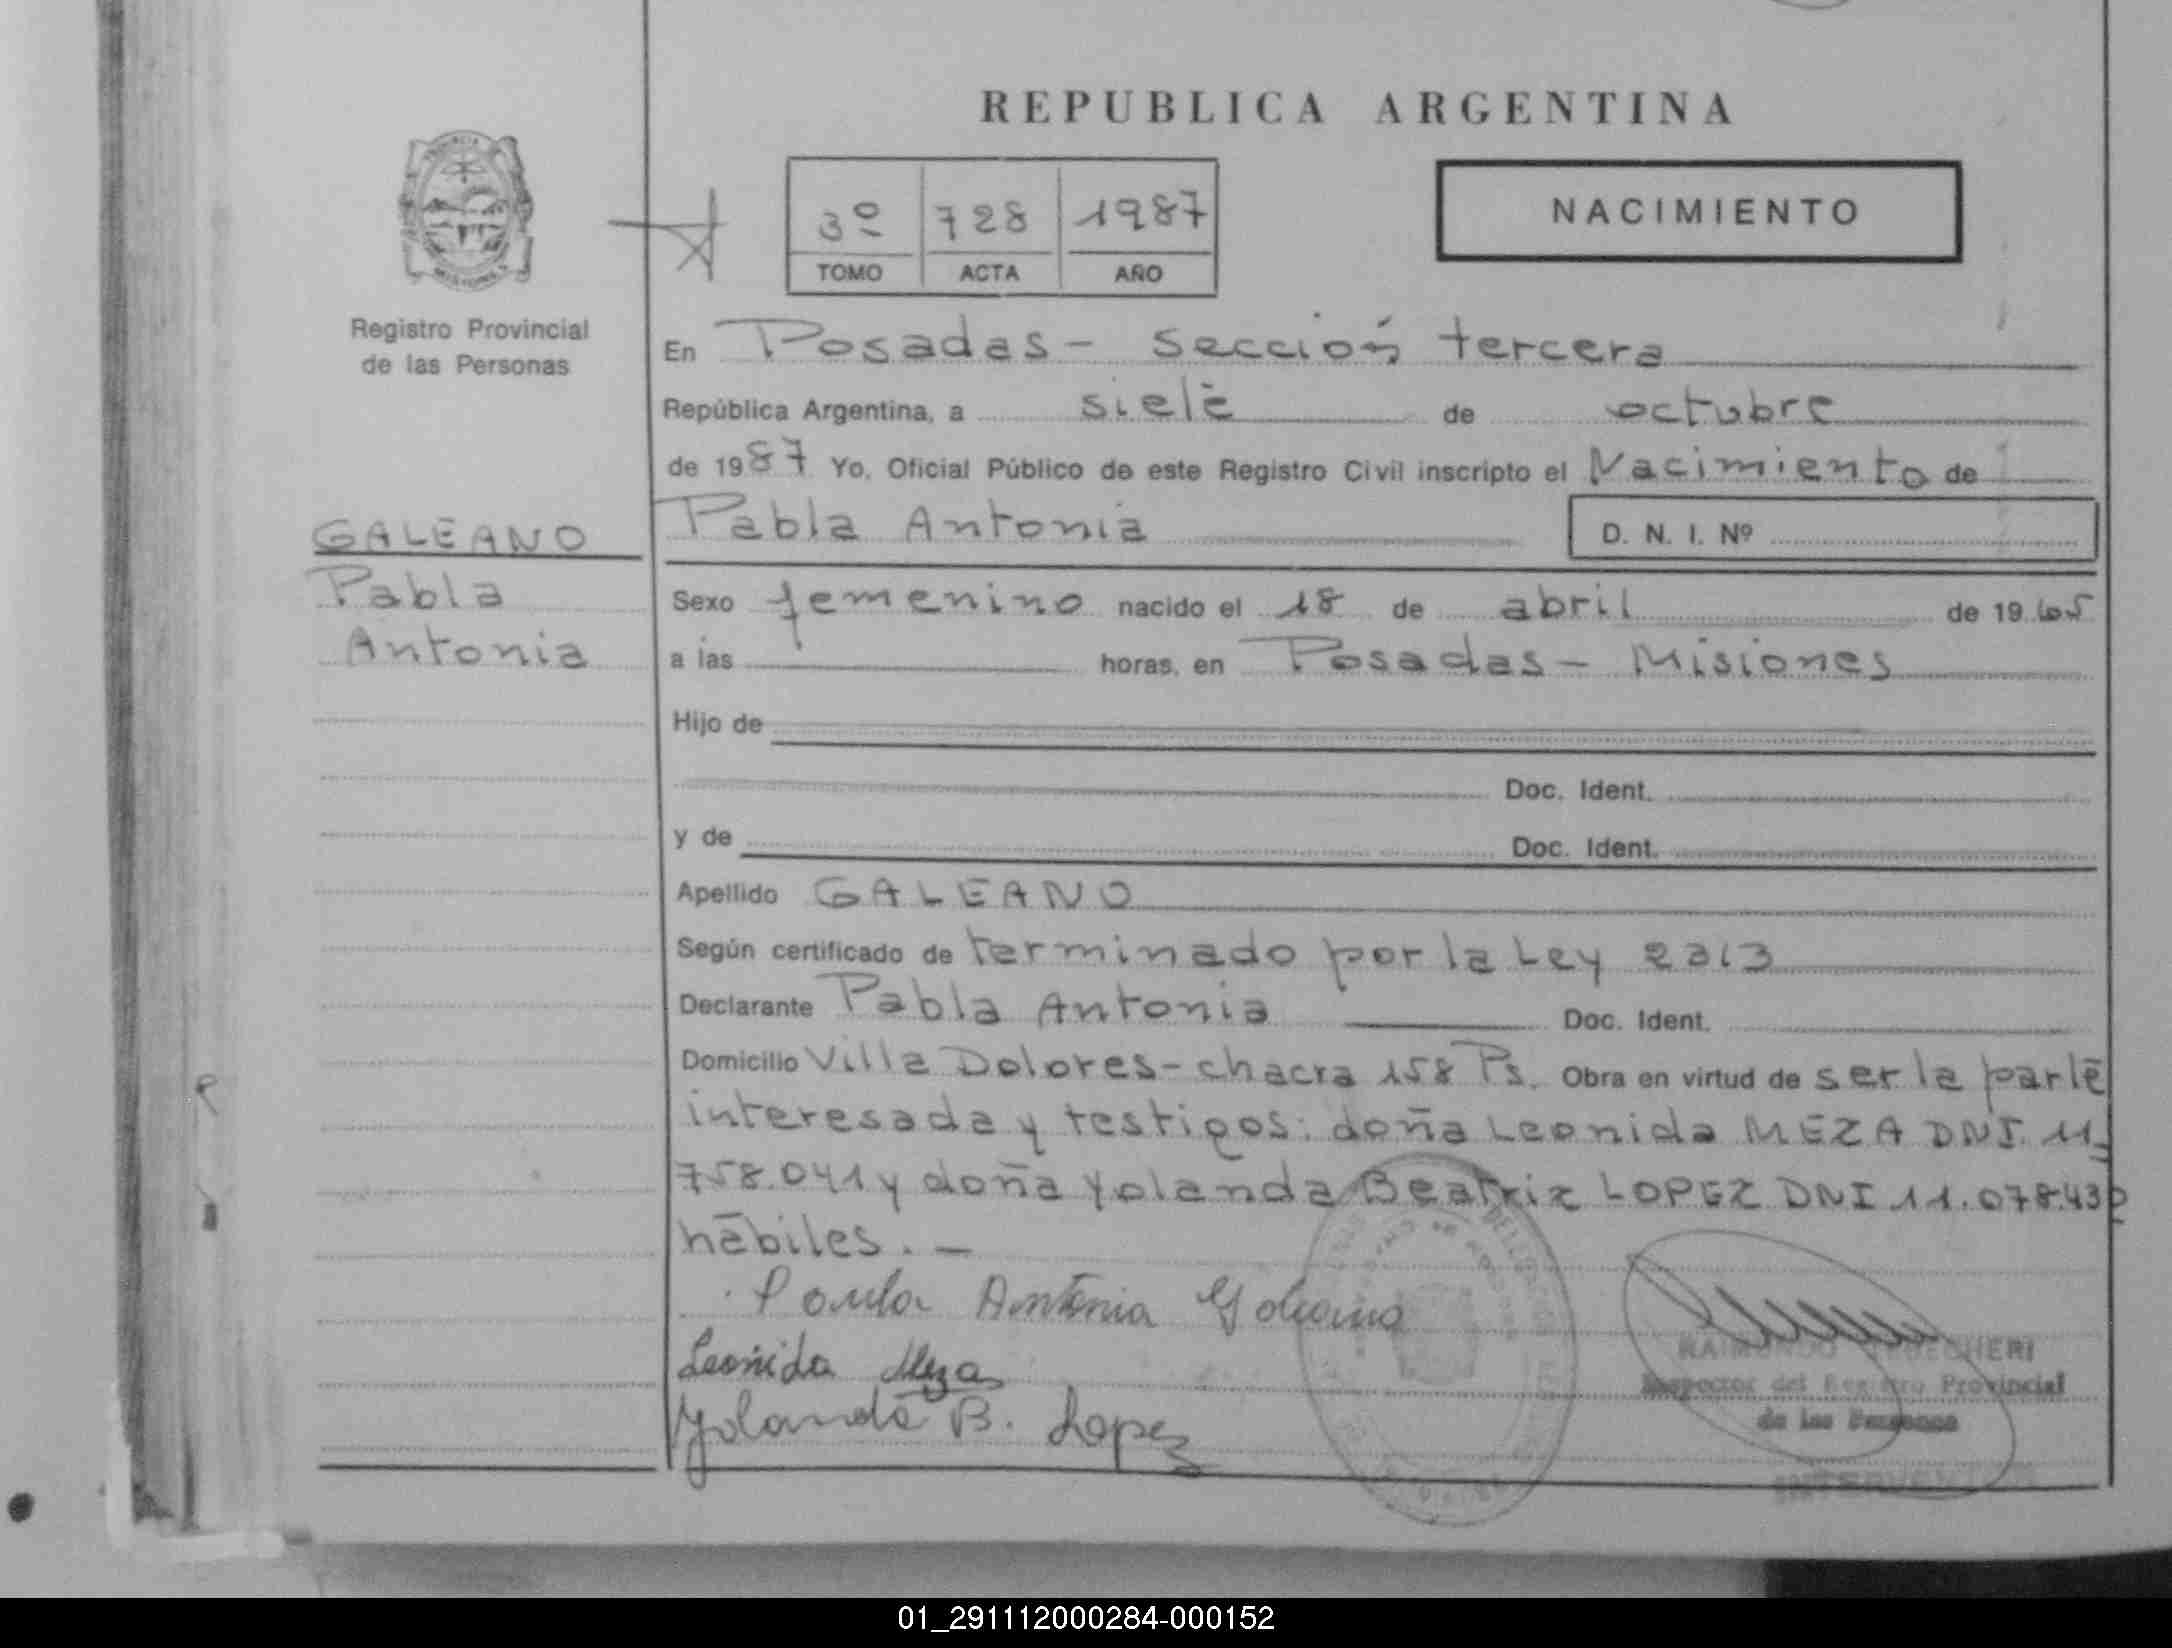 REPUBLICA ARGENTINA
3º 728 1987
TOMO ACTA AÑO
NACIMIENTO
Registro Provincial
de las Personas
En Posadas - sección tercera
República Argentina, a siete de octubre
de 1987 Yo, Oficial Público de este Registro Civil inscripto el Nacimiento de
GALEANO
Pabla Antonia D. N. I. Nº
Pabla
Antonia
Sexo femenino nacido el 18 de abril de 1965
a las horas, en Posadas - Misiones
Hijo de
Doc. Ident.
y de Doc. Ident.
Apellido GALEANO
Según certificado de terminado por la Ley 2313
Declarante Pabla Antonia Doc. Ident.
Domicilio Villa Dolores - chacra 158 Ps. Obra en virtud de ser la parte
interesada y testigos: doña Leonida MEZA DNI. 11-
758.041 y doña Yolanda Beatriz LOPEZ DNI 11.078.432
hábiles. -
Antonia
Leonida Meza
Yolanda B. Lopez
RAIMUNDO
Inspector del Registro Provincial
de las Personas
01_291112000284-000152